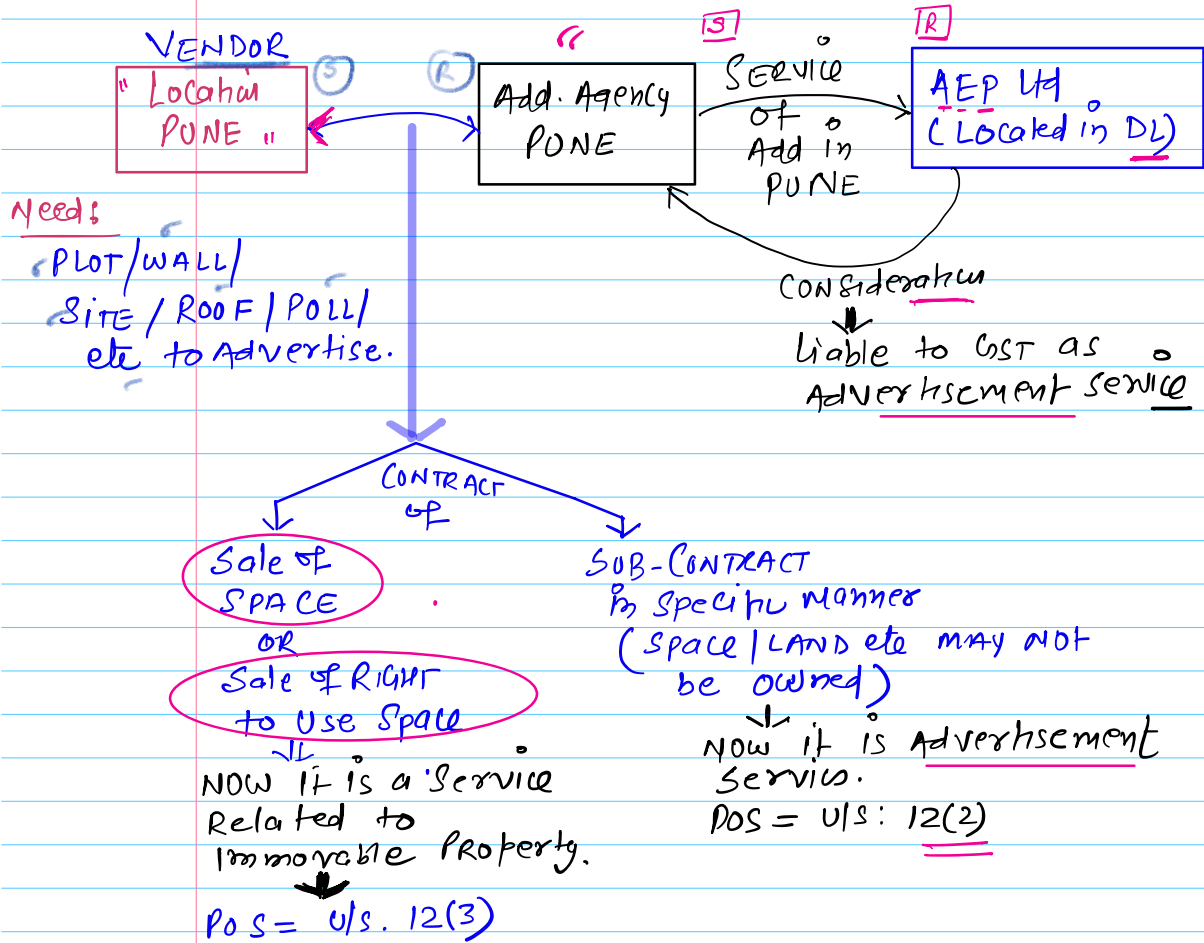 VENDOR
" Location
PUNE "
S
R
Add. Agency
PUNE
"
S
SERVICE
of
Add in
PUNE
R
AEP Ltd
(Located in DL)
Needs
PLOT/WALL/
SITE / ROOF / POLL/
etc to Advertise.
CONSideration
liable to GST as
Advertisement Service
CONTRACT
of
Sale of
SPACE
OR
Sale of RIGHT
to Use Space
NOW It is a Service
Related to
Immovable Property.
POS = U/S. 12(3)
SUB-CONTRACT
in Specific Manner
(Space / LAND etc MAY NOT
be owned)
NOW it is Advertisement
Servics.
POS = U/S: 12(2)